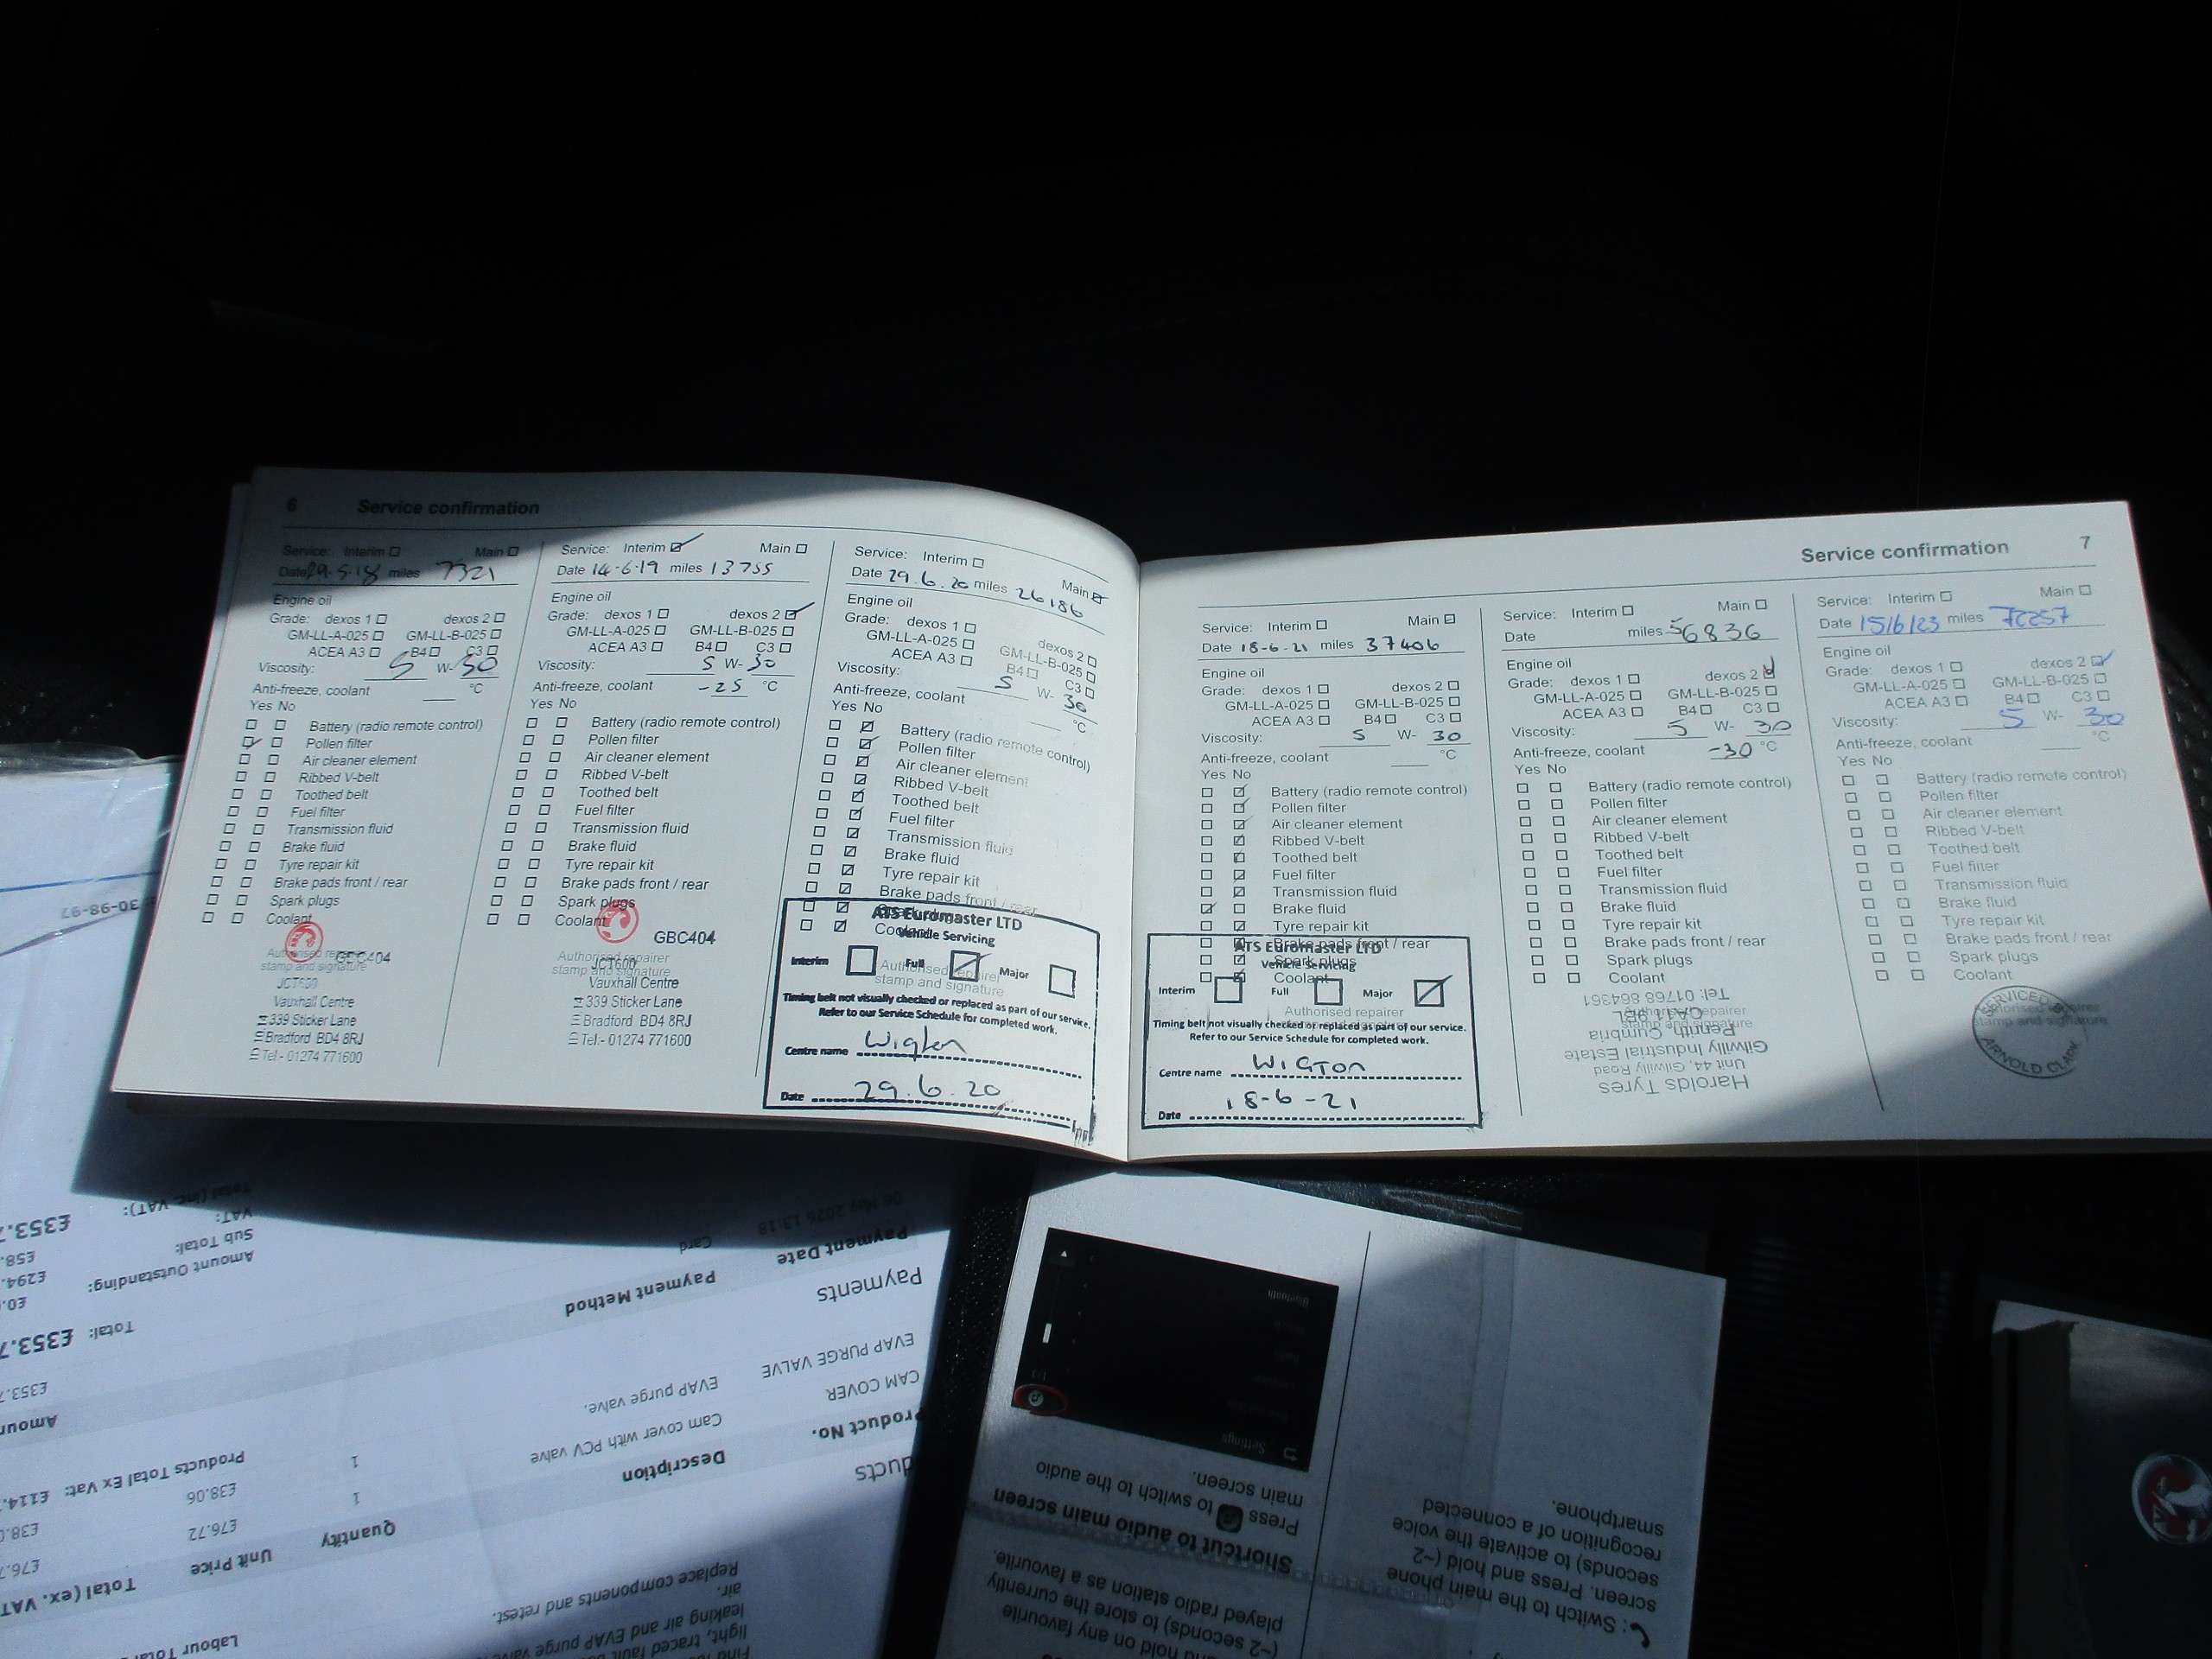 6 Service confirmation
Service: Interim Main
Date 29.5.18 miles 7321
Engine oil
Grade: dexos 1 dexos 2
GM-LL-A-025 GM-LL-B-025
ACEA A3 B4 C3
Viscosity: 5 W- 30
Anti-freeze, coolant °C
Yes No
Battery (radio remote control)
Pollen filter
Air cleaner element
Ribbed V-belt
Toothed belt
Fuel filter
Transmission fluid
Brake fluid
Tyre repair kit
Brake pads front / rear
Spark plugs
Coolant
Authorised repairer
stamp and signature
JCT600
Vauxhall Centre
339 Sticker Lane
Bradford BD4 8RJ
Tel:- 01274 771600
Service: Interim Main
Date 14-6-19 miles 13755
Engine oil
Grade: dexos 1 dexos 2
GM-LL-A-025 GM-LL-B-025
ACEA A3 B4 C3
Viscosity: 5 W- 30
Anti-freeze, coolant -25 °C
Yes No
Battery (radio remote control)
Pollen filter
Air cleaner element
Ribbed V-belt
Toothed belt
Fuel filter
Transmission fluid
Brake fluid
Tyre repair kit
Brake pads front / rear
Spark plugs
Coolant
GBC404
Authorised repairer
stamp and signature
JCT600
Vauxhall Centre
339 Sticker Lane
Bradford BD4 8RJ
Tel:- 01274 771600
Service: Interim Main
Date 29.6.20 miles 26186
Engine oil
Grade: dexos 1 dexos 2
GM-LL-A-025 GM-LL-B-025
ACEA A3 B4 C3
Viscosity: 5 W- 30
Anti-freeze, coolant °C
Yes No
Battery (radio remote control)
Pollen filter
Air cleaner element
Ribbed V-belt
Toothed belt
Fuel filter
Transmission fluid
Brake fluid
Tyre repair kit
Brake pads front / rear
ATS Euromaster LTD
Vehicle Servicing
Interim Full Major
Authorised repairer
stamp and signature
Timing belt not visually checked or replaced as part of our service.
Refer to our Service Schedule for completed work.
Centre name Wigton
Date 29.6.20
Service confirmation 7
Service: Interim Main
Date 18-6-21 miles 37406
Engine oil
Grade: dexos 1 dexos 2
GM-LL-A-025 GM-LL-B-025
ACEA A3 B4 C3
Viscosity: 5 W- 30
Anti-freeze, coolant °C
Yes No
Battery (radio remote control)
Pollen filter
Air cleaner element
Ribbed V-belt
Toothed belt
Fuel filter
Transmission fluid
Brake fluid
Tyre repair kit
Brake pads front / rear
Spark plugs
Coolant
ATS Euromaster LTD
Vehicle Servicing
Interim Full Major
Authorised repairer
Timing belt not visually checked or replaced as part of our service.
Refer to our Service Schedule for completed work.
Centre name WIGTON
Date 18-6-21
Service: Interim Main
Date miles 56836
Engine oil
Grade: dexos 1 dexos 2
GM-LL-A-025 GM-LL-B-025
ACEA A3 B4 C3
Viscosity: 5 W- 30
Anti-freeze, coolant -30 °C
Yes No
Battery (radio remote control)
Pollen filter
Air cleaner element
Ribbed V-belt
Toothed belt
Fuel filter
Transmission fluid
Brake fluid
Tyre repair kit
Brake pads front / rear
Spark plugs
Coolant
Authorised repairer
stamp and signature
Harolds Tyres
Unit 44, Gilwilly Road
Gilwilly Industrial Estate
Penrith Cumbria
CA11 9BL
Tel: 01768 864361
Service: Interim Main
Date 15/6/23 miles
Engine oil
Grade: dexos 1 dexos 2
GM-LL-A-025 GM-LL-B-025
ACEA A3 B4 C3
Viscosity: 5 W- 30
Anti-freeze, coolant °C
Yes No
Battery (radio remote control)
Pollen filter
Air cleaner element
Ribbed V-belt
Toothed belt
Fuel filter
Transmission fluid
Brake fluid
Tyre repair kit
Brake pads front / rear
Spark plugs
Coolant
Authorised repairer
stamp and signature
SERVICED BY
ARNOLD CLARK
Labour Total
light, traced fault
leaking air and EVAP purge
air.
Replace components and retest.
Product No. Description Quantity Unit Price Total (ex. VAT
CAM COVER Cam cover with PCV valve 1 £76.72 £76.7
EVAP PURGE VALVE EVAP purge valve. 1 £38.06 £38.0
Products Total Ex Vat: £114.
Payments
Payment Date Payment Method Amoun
Card £353.7
Total: £353.7
Amount Outstanding: £0.
Sub Total: £294.
VAT: £58.
Total (inc. VAT): £353.
and hold on any favourite
(~2 seconds) to store the currently
played radio station as a favourite.
Shortcut to audio main screen
Press to switch to the audio
main screen.
Settings
Bluetooth
: Switch to the main phone
screen. Press and hold (~2
seconds) to activate the voice
recognition of a connected
smartphone.